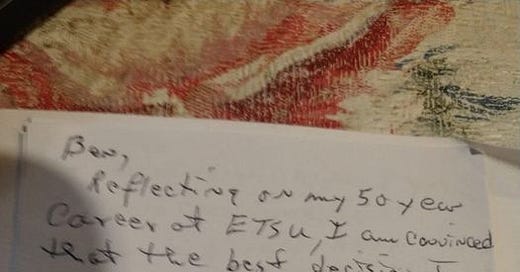 Ben,
Reflecting on my 50 year
Career at ETSU, I am convinced
that the best decision I